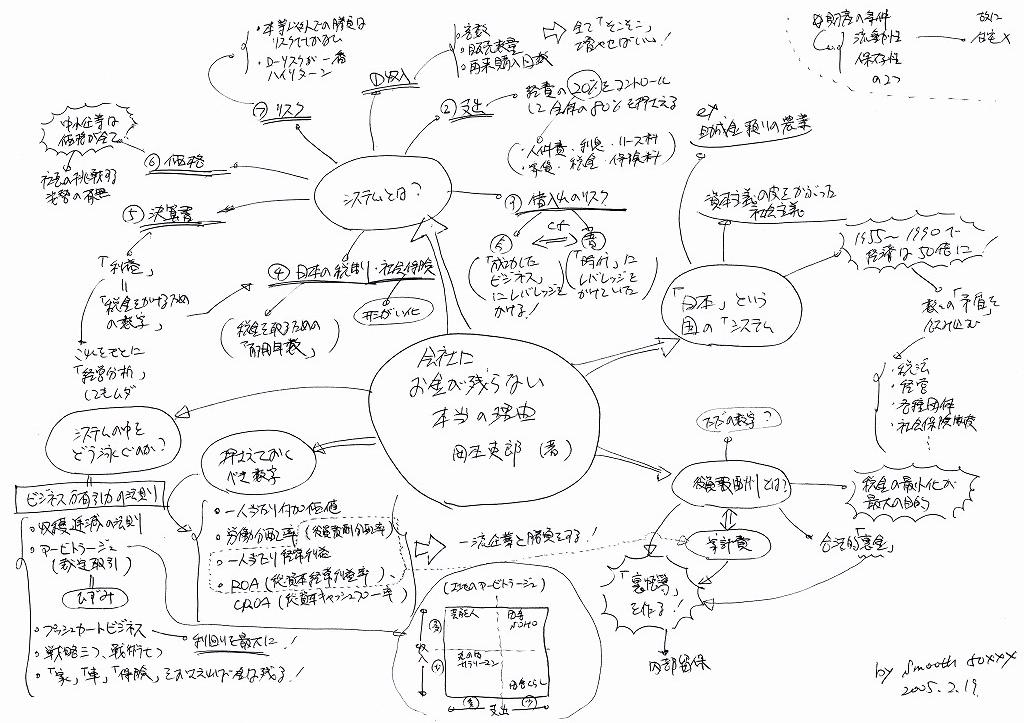 ・本業以外での勝負は
リスクでしかない
・ローリスクが一番
ハイリターン
⑦ リスク
① 収入
・客数
・販売数量
・再来購入回数
⇨ 全て「そこそこ」
で増やせばいい!
② 支出
経費の20%をコントロール
して全体の80%を押さえる
・人件費・利息・リース料
・家賃・税金・保険料
財産の条件
流動性
保存性
の2つ
故に
住宅×
中小企業は
価格が全て
⑥ 価格
⑤ 決算書
システムとは?
③ 借入金のリスク
cf
「成功した
ビジネス」
にレバレッジを
かける!
「時代」に
レバレッジを
かけていた
④ 日本の税制・社会保険
税金を取るための
「耐用年数」
「利益」
「税金をかけるため
の数字」
これをもとに
「経営分析」
してもムダ
ex
助成金頼りの農業
資本主義の皮をかぶった
社会主義
1955〜1990で
経済は50倍に!
「日本」という
国の「システム
数々の「矛盾を
・税法
・経営
・各種団体
・社会保険制度
会社に
お金が残らない
本当の理由
岡本吏郎(著)
システムの中を
どう泳ぐのか?
押さえておく
べき数字
ビジネス万有引力の法則
・収穫逓減の法則
・アービトラージュ
(裁定取引)
ひずみ
・プッシュカートビジネス
利回りを最大に!
・戦略三つ、戦術七つ
・「家」「車」「保険」をおさえれば金は残る!
・一人当たり付加価値
・労働分配率(役員報酬分配率)
・一人当たり経常利益
・ROA(総資本経常利益率)
CROA(総資本キャッシュフロー率)
⇨ 一流企業と勝負をする!
役員報酬とは?
税金の最小化が
最大の目的
家計費
合法的「裏金」
「裏帳簿」
を作る!
内部留保
(立地のアービトラージュ)
芸能人
田舎
SOHO
サラリーマン
田舎くらし
収入
支出
by smooth
2005.2.19.